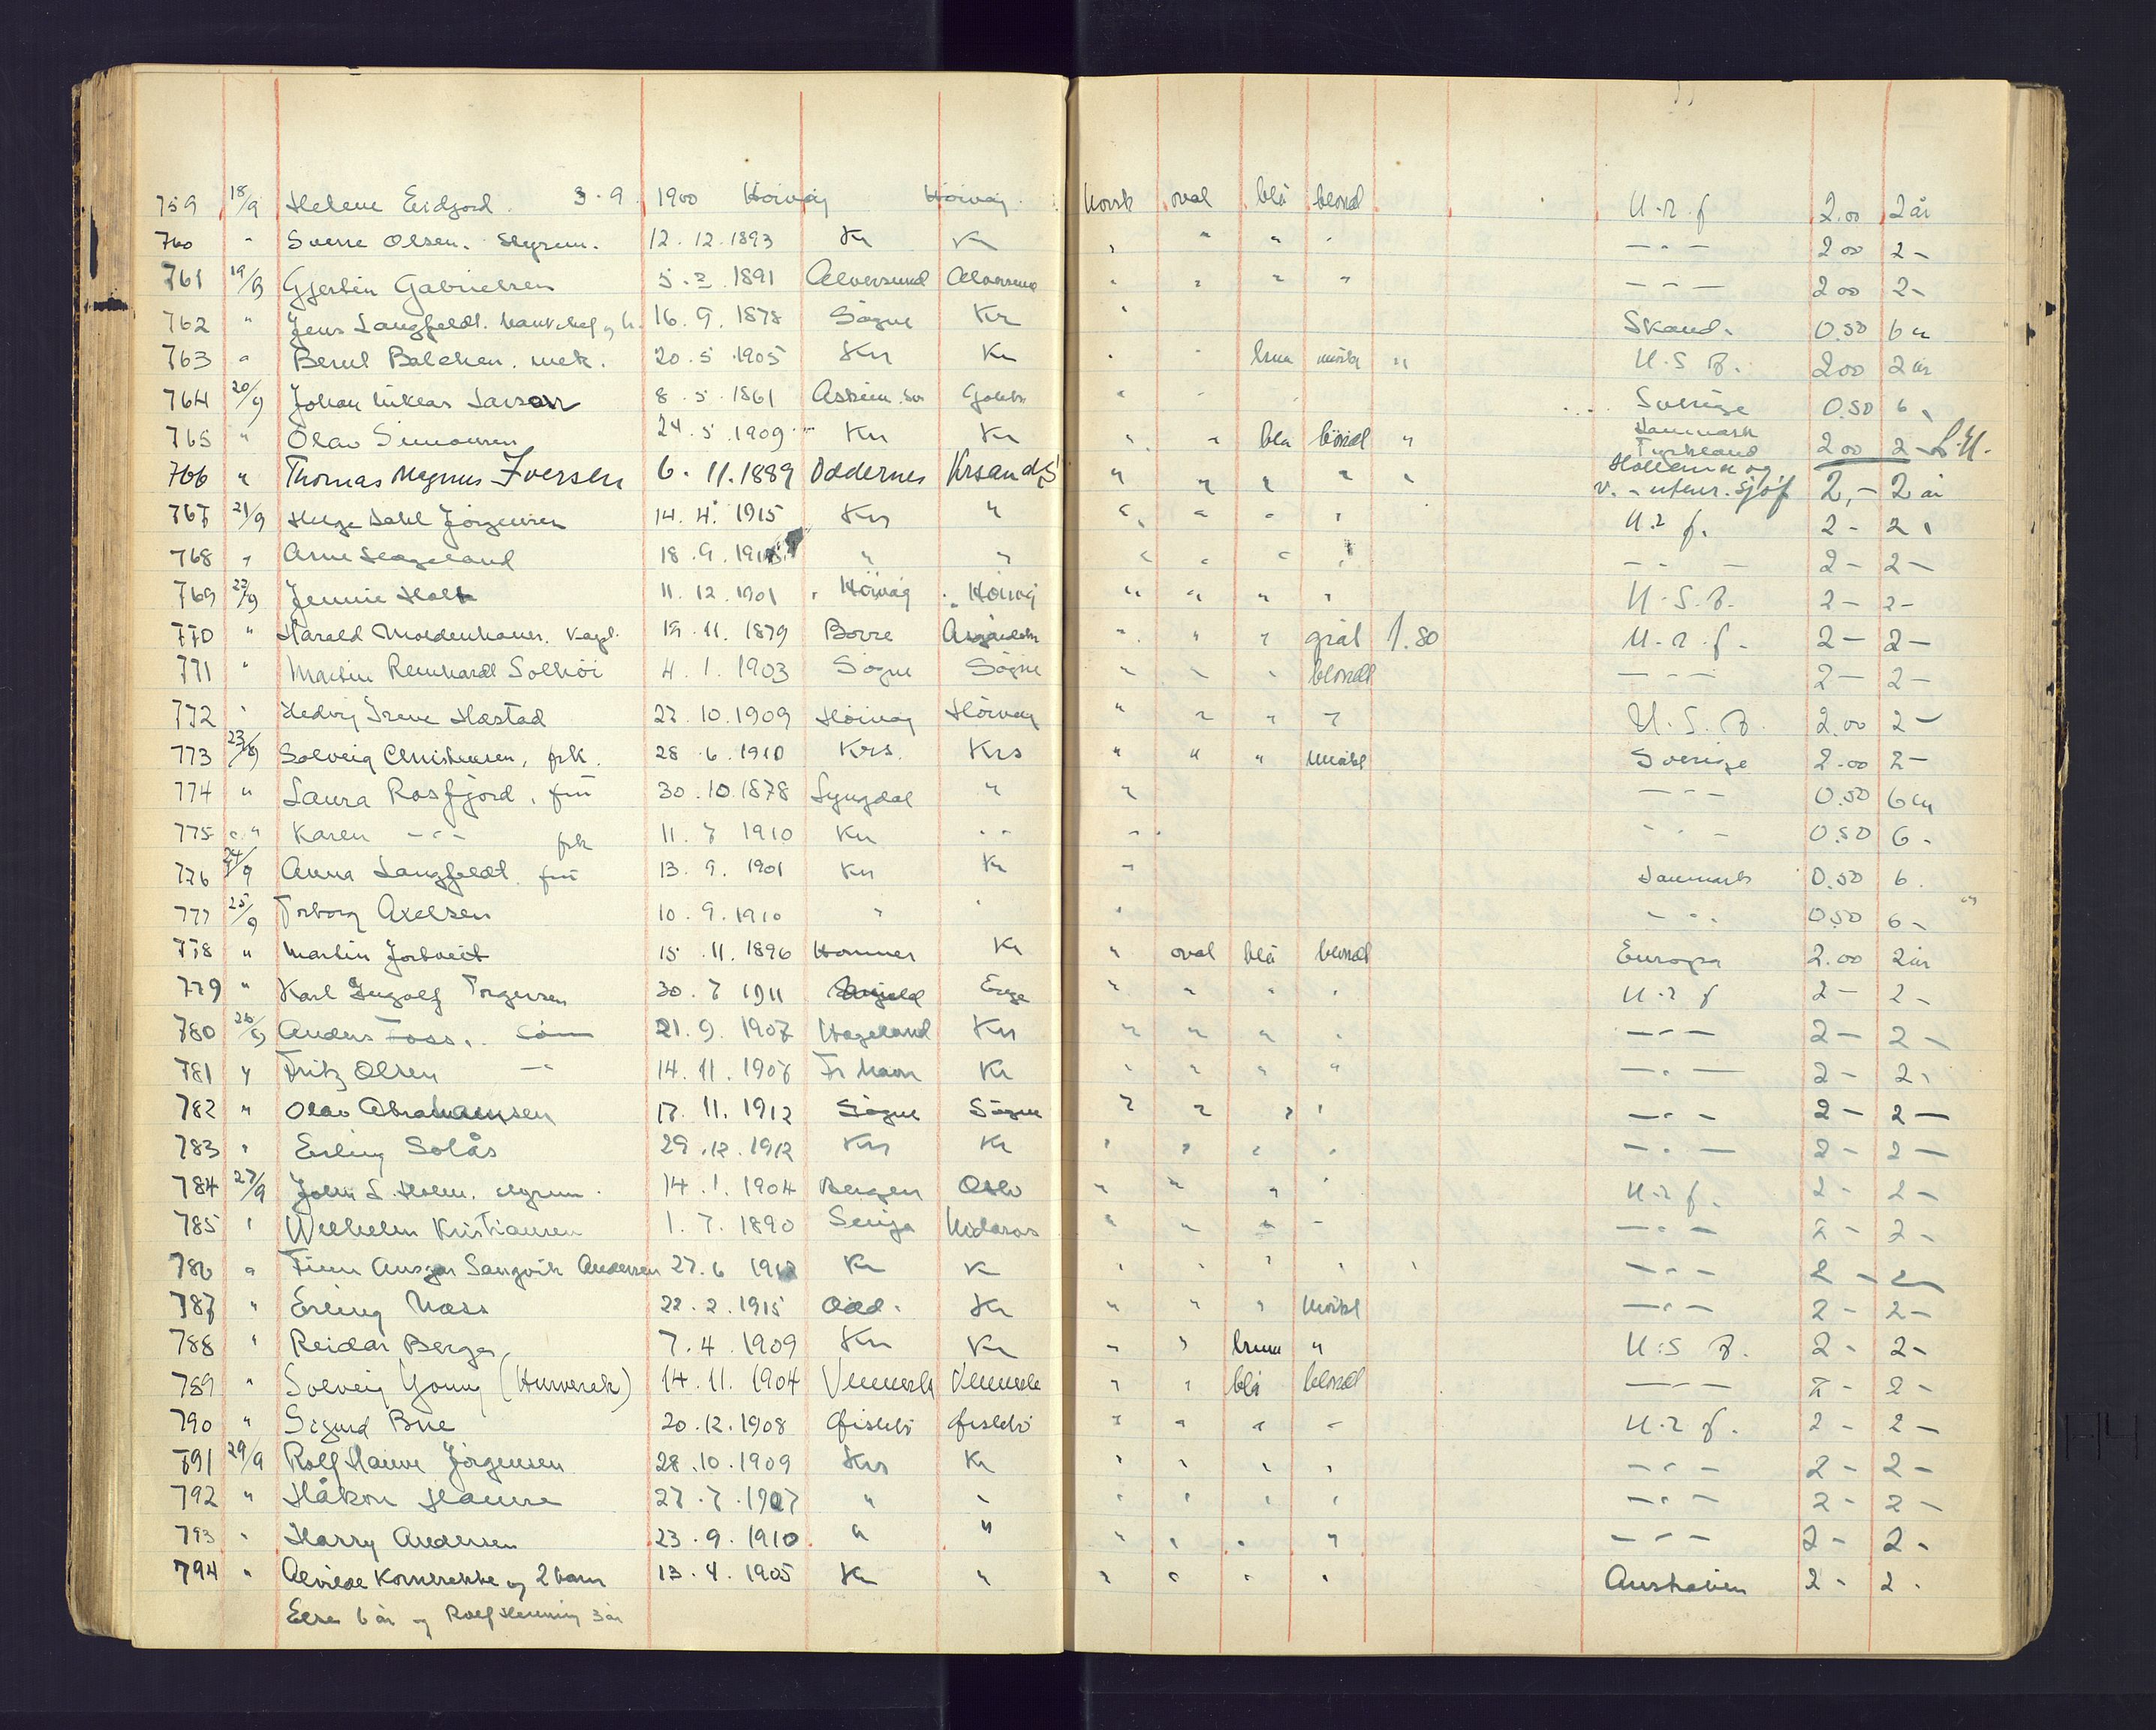 759 18/9 Helene Eidjord. 3.9. 1900 Höivåg Höivåg. Norsk oval blå blond U.r.f 2.00 2 år
760 " Sverre Olsen. styrm. 12.12.1893 Kr Kr " " " " — " — 2 00 2 -
761 19/9 Gjertin Gabrielsen 5.2.1891 Alversund Alversund " " " " — " — 2 00 2 -
762 " Jens Langfeldt. 16.9.1878 Sögne Kr " Skand. 0.50 6 m
763 " Bernt Balchen. mek. 20.5.1905 Kr Kr " " brun mörk " U.S.A. 2 00 2 år
764 20/9 Johan Niklas Larson 8.5.1861 " Sverige 0.50 6 "
765 " Olav Simonsen 24.5.1909 Kr Kr " " blå blond " Danmark Tyskland 2 00 2 -
766 " Thomas Magnus Iversen 6.11.1889 Oddernes Krsand S " " " " " Holland og v. - utenr. sjöf 2,- 2 år
767 21/9 Helge Dahl Jörgensen 14.4.1915 Krs " " " " " U.r f. 2 - 2 "
768 " Arne Hageland 18.9.1915 " " " " " " — " — 2 - 2 -
769 22/9 Jennie Holt 11.12.1901 Höivåg Höivåg " " " " U.S.A. 2 - 2 -
770 " Harald Moldenhauer. kapt. 19.11.1879 Borre " " " grål 1.80 U.r.f. 2 - 2 -
771 " Martin Reinhardt Solhöi 4.1.1903 Sögne Sögne " " " blondt — " — 2 - 2 -
772 " Hedvig Irene Hæstad 27.10.1909 Höivåg Höivåg " " " " U.S.A. 2.00 2 -
773 23/9 Solveig Christensen, frk. 28.6.1910 Krs. Krs " " " mörkt Sverige 2.00 2 -
774 " Laura Rosfjord, fru 30.10.1878 Lyngdal " " — " — 0.50 6 m
775 " Karen — " — frk 11.7 1910 Kr " " " — " — 0.50 6 "
776 24/9 Anna Langfeldt. fru 13.9.1901 Kr Kr " Danmark 0.50 6 "
777 25/9 Torborg Axelsen 10.9.1910 " " " — " — 0.50 6 -
778 " Martin Jortveit 15.11.1896 Hommer Kr " oval blå blondt Europa 2.00 2 år
779 " Karl Ingolf Torgersen 30.7 1911 Eige " " " " U.r f 2 - 2 -
780 26/9 Anders Foss. 21.9.1907 Hægeland Krs " " " " — " — 2 - 2 -
781 " Fritz Olsen — " 14.11.1907 Fr havn Kr " " " " — " — 2 - 2 "
782 " Olav Abrahamsen 17.11.1912 Sögne Sögne " " " " — " — 2 - 2 -
783 " Erling Solås 29.12.1912 Krs Kr " " " " — " — 2 - 2 -
784 27/9 John S. Holm. styrm. 14.1.1904 Bergen Oslo " " " " U.r f. 2 - 2 -
785 " Wilhelm Kristiansen 1.7.1890 Senja Nidaros " " " " — " — 2 - 2 -
786 " Finn Ansgar Sangvik Andersen 27.6 1912 Kr Kr " " " " " — " — 2 - 2 -
787 " Erling Næss 22.2.1915 Odd. Kr " " " mörkt — " — 2 - 2 -
788 " Reidar Berge 7.4.1909 Kr Kr " " brun " U.S A. 2 - 2 -
789 " Solveig Young (Hunserek) 14.11.1904 Vennesla Vennesla " " blå blond — " — 2 - 2 -
790 " Sigurd Bue 20.12.1908 Öislebö Öislebö " " " " U.r f. 2 - 2 -
791 29/9 Rolf Hanve Jörgensen 28.10.1909 Krs Kr " " " " — " — 2 - 2 -
792 " Håkon Hamre 27.7.1907 " " " " " " — " — 2 - 2 -
793 " Harry Andersen 23.9.1910 " " " " " " — " — 2 - 2 -
794 " Alvilde Kornbrekke og 2 barn 13.4.1905 Kr " " " " " Australien 2 - 2 -
Else 6 år og Rolf Henning 3 år